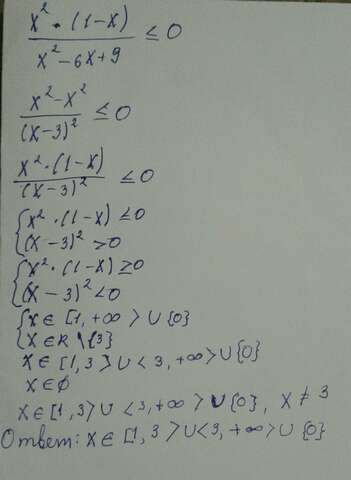 x² · (1-x) / x² - 6x + 9 ≤ 0
x² - x² / (x-3)² ≤ 0
x² · (1-x) / (x-3)² ≤ 0
{ x² · (1-x) ≤ 0
(x-3)² > 0
{ x² · (1-x) ≥ 0
(x-3)² < 0
{ x ∈ [1, +∞ > ∪ {0}
x ∈ R \ {3}
x ∈ [1, 3 > ∪ < 3, +∞ > ∪ {0}
x ∈ ∅
x ∈ [1, 3 > ∪ < 3, +∞ > ∪ {0}, x ≠ 3
Ответ: x ∈ [1, 3 > ∪ < 3, +∞ > ∪ {0}